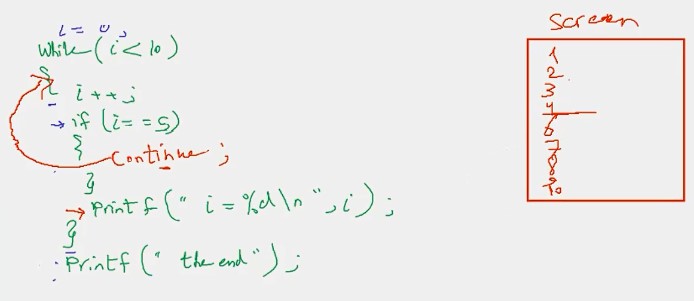 i = 0;
While (i < 10)
{
i ++;
if (i == 5)
{
Continue;
}
Printf (" i = %d\n ", i);
}
Printf (" the end ");
Screen
1
2
3
4
6
7
8
9
10